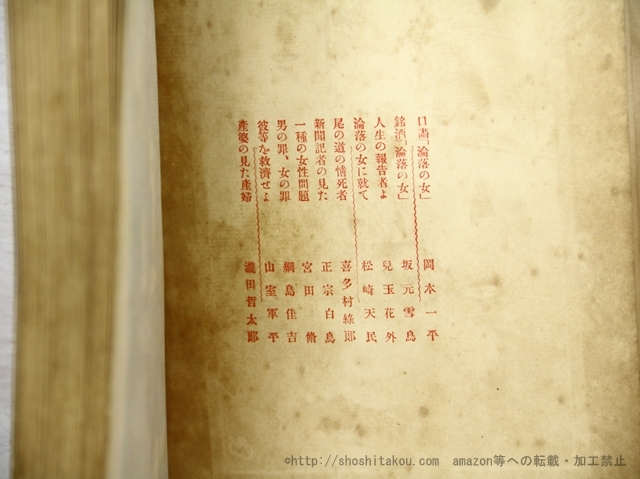 口畵「淪落の女」 岡本一平
銘酒「淪落の女」 坂元雪鳥
人生の報告者よ 兒玉花外
淪落の女に就て 松崎天民
尾の道の情死者 喜多村綠郞
新聞記者の見た 正宗白鳥
一種の女性問題 宮田脩
男の罪、女の罪 綱島佳吉
彼等を救濟せよ 山室軍平
產婆の見た產婦 瀧田哲太郞
©http://shoshitakou.com amazon等への転載・加工禁止